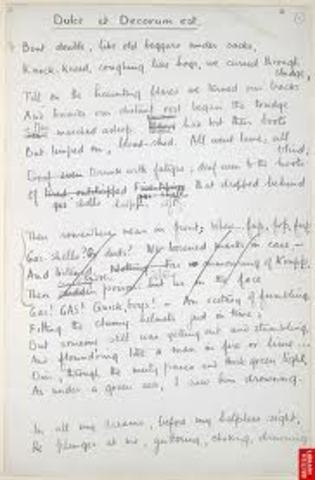 Dulce et Decorum est.
Bent double, like old beggars under sacks,
Knock-kneed, coughing like hags, we cursed through
sludge,
Till on the haunting flares we turned our backs
And towards our distant rest began the trudge
marched asleep. had lost their boots
But limped on, blood-shod. All went lame; all
blind;
Drunk with fatigue; deaf even to the hoots
Of that dropped behind
gas shells
Then somewhere near in front: Whew fup, fup, fup
Gas shells? Or duds? We loosened masks in case —
And of Krupp,
Then sudden us in the face
Gas! GAS! Quick, boys! — An ecstasy of fumbling
Fitting the clumsy helmets just in time;
But someone still was yelling out and stumbling,
And floundering like a man in fire or lime...
Dim, through the misty panes and thick green light,
As under a green sea, I saw him drowning.
In all my dreams, before my helpless sight,
He plunges at me, guttering, choking, drowning